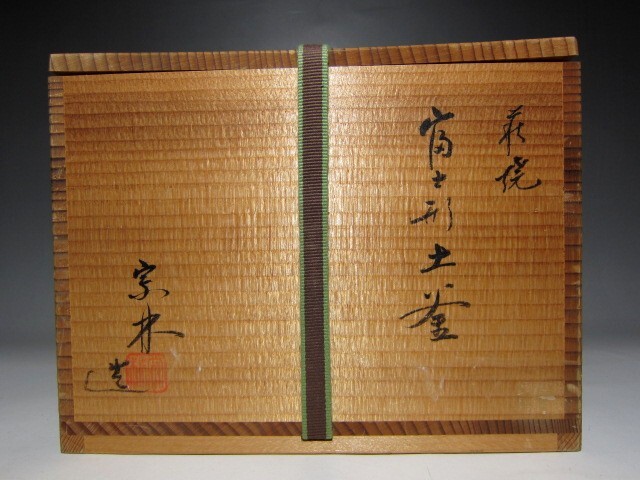 萩焼
富士形土釜
宗林
造